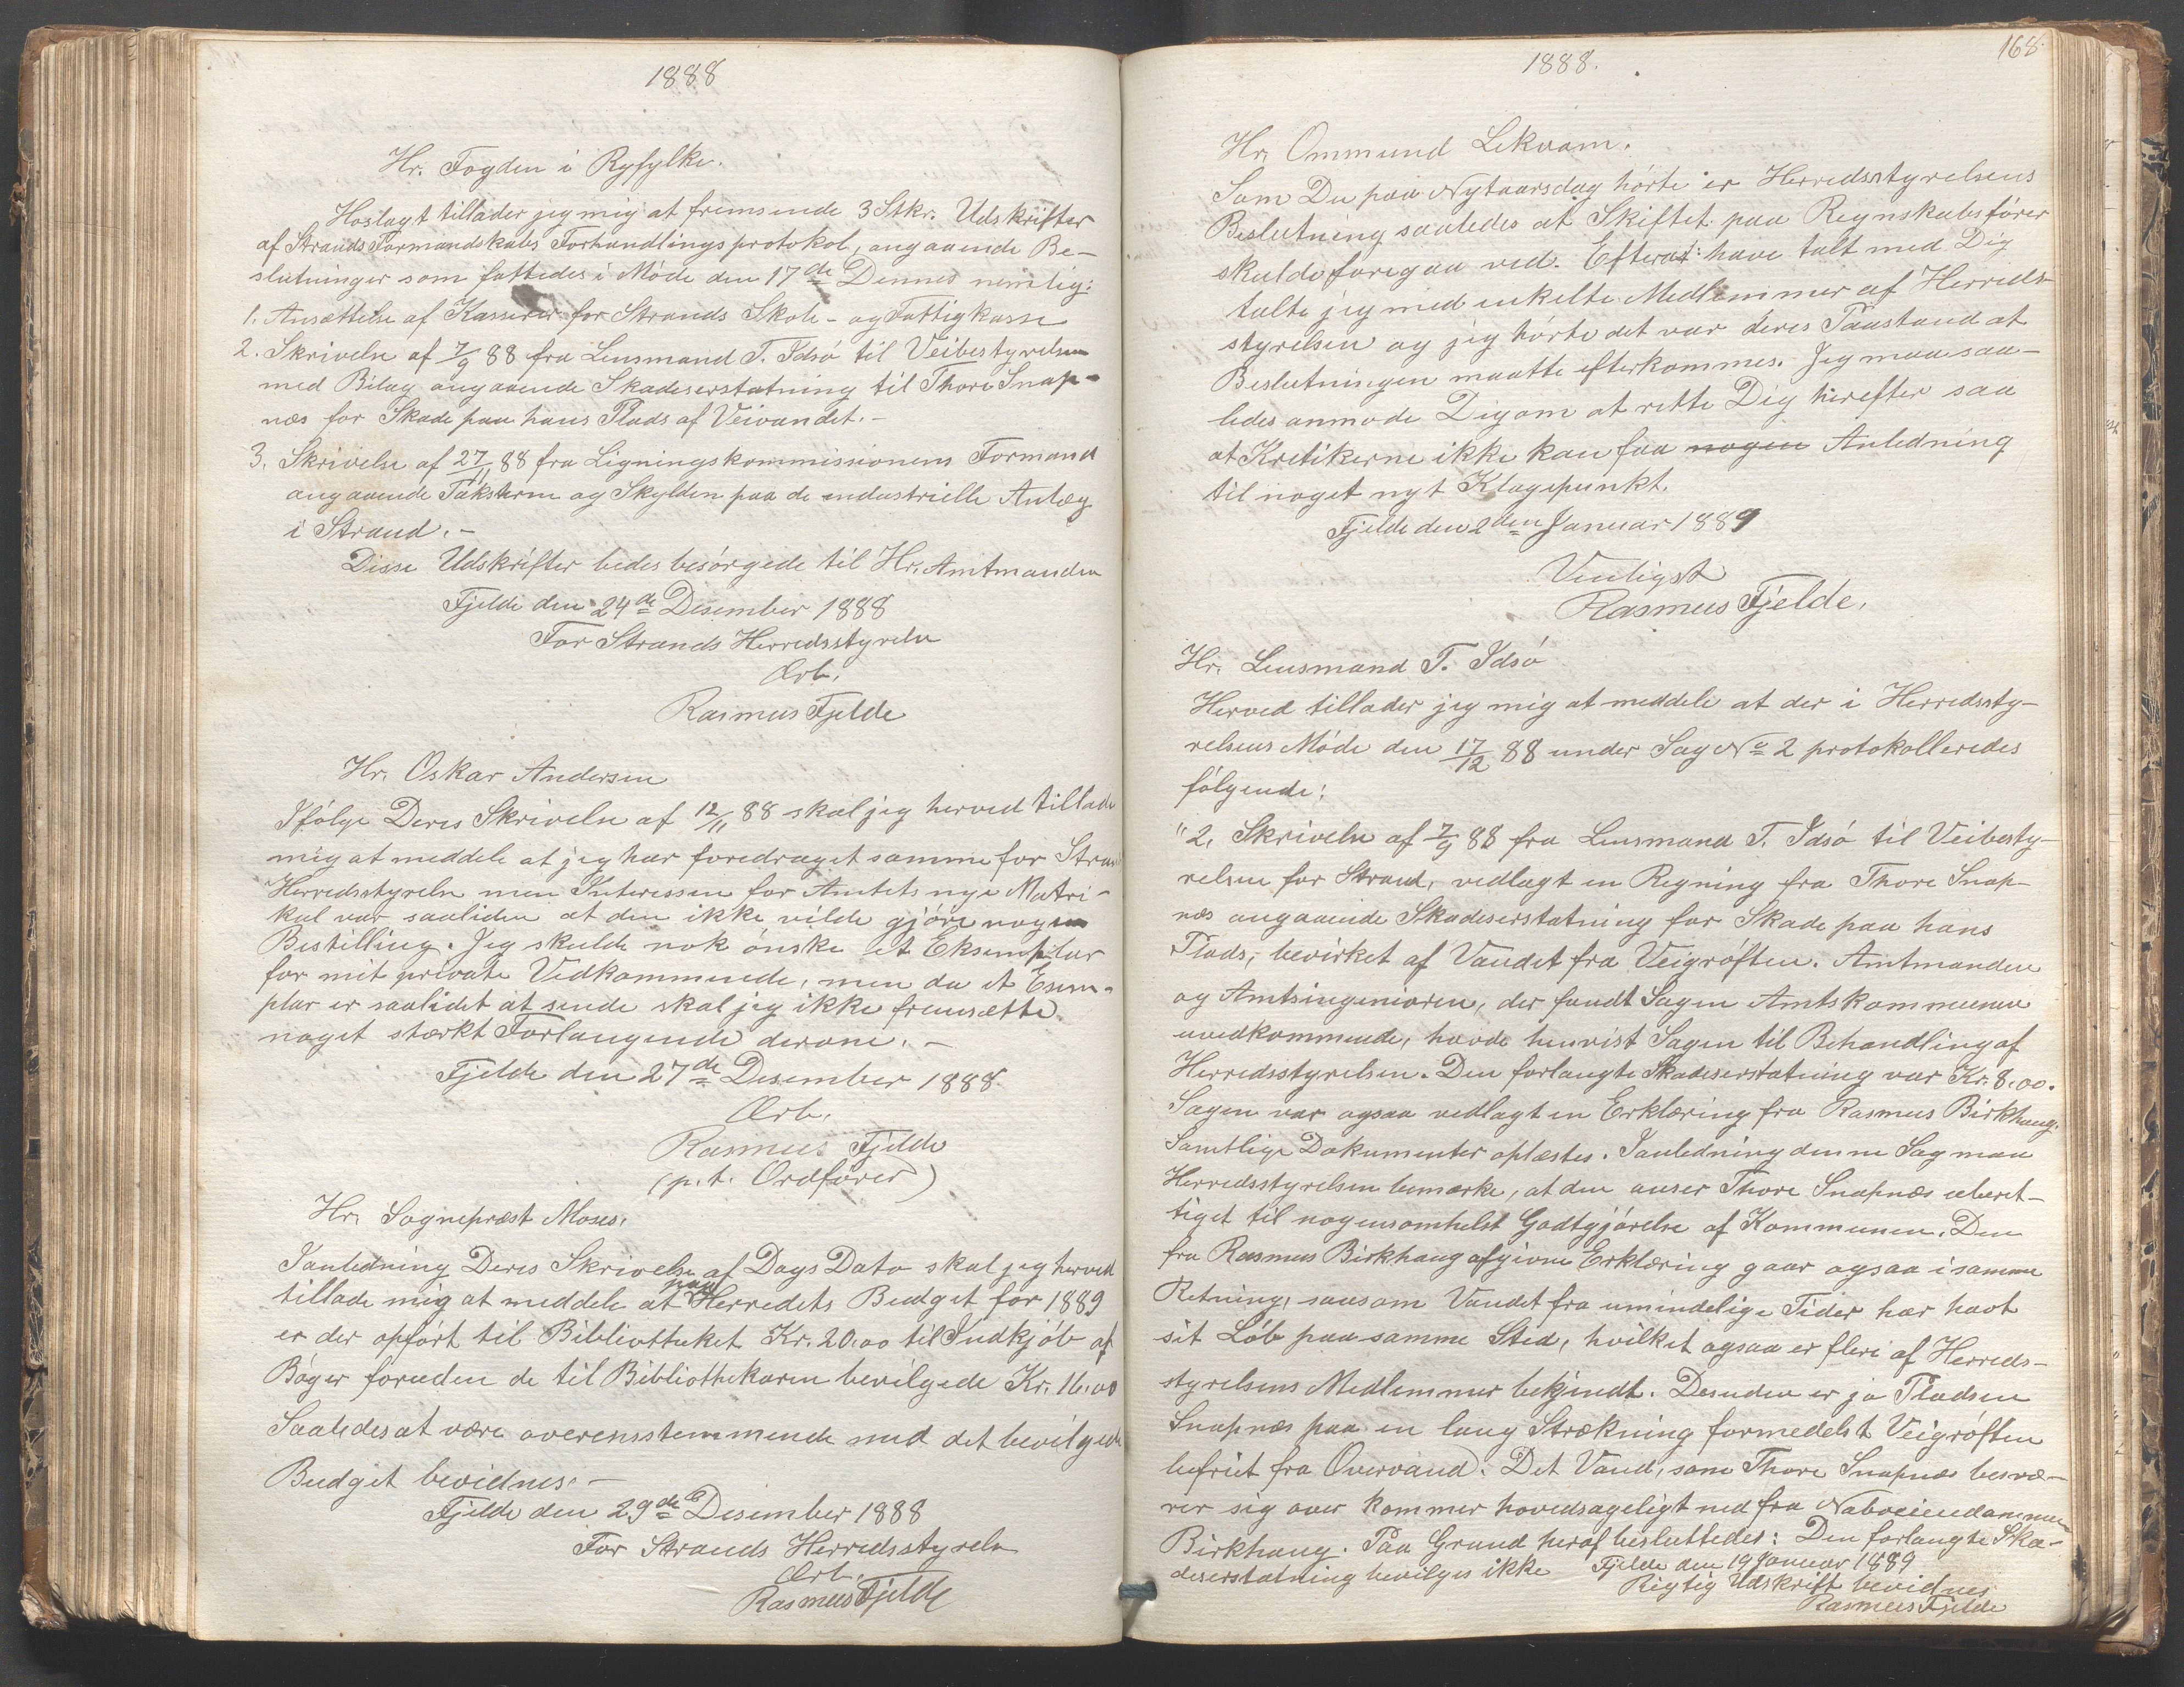 1888
Hr. Fogden i Ryfylke.
Hoslagt tillader jeg mig at fremsende 3 Stkr. Udskrifter
af Strands Formandskabs Forhandlingsprotokol, angaaende Be-
slutninger som fattedes i Møde den 17de Dennes nemlig:
1. Ansættelse af Kasserer for Strands Skole- og Fattigkasse
2. Skrivelse af 7/9 88 fra Lensmand T. Idsø til Veibestyrelsen
med Bilag angaaende Skadeserstatning til Thore Snap-
næs for Skade paa hans Plads af Veivandet.-
3. Skrivelse af 27/11 88 fra Ligningskommissionens Formand
angaaende Taksterne og Skylden paa de industrielle Anlæg
i Strand.-
Disse Udskrifter bedes besørgede til Hr. Amtmanden
Fjelde den 24de Desember 1888
For Strands Herredsstyrelse
Ærb.
Rasmus Fjelde
Hr. Oskar Andersen
Ifølge Deres Skrivelse af 12/11 88 skal jeg herved tillade
mig at meddele at jeg har foredraget samme for Strands
Herredsstyrelse men Interessen for Amtets nye Matri-
kul var saaliden at den ikke vilde gjøre nogen
Bestilling. Jeg skulde nok ønske et Eksemplar
for mit private Vedkommende, men da et Exem-
plar er saalidet at sende skal jeg ikke fremsætte
noget stærkt Forlangende derom.-
Fjelde den 27de Desember 1888
Ærb.
Rasmus Fjelde
(p.t. Ordfører)
Hr. Sognepræst Moses.
Ianledning Deres Skrivelse af Dags Dato skal jeg herved
tillade mig at meddele at paa Herredets Budget for 1889
er der opført til Bibliotheket Kr. 20.00 til Indkjøb af
Bøger foruden de til Bibliothekaren bevilgede Kr. 16.00
Saaledes at være overensstemmende med det bevilgede
Budget bevidnes.-
Fjelde den 29de Desember 1888
For Strands Herredsstyrelse
Ærb.
Rasmus Fjelde
168.
1888.
Hr. Ommund Lekvam.
Som Du paa Nytaarsdag hørte er Herredsstyrelsens
Beslutning saaledes at Skiftet paa Regnskabsfører
skulde foregaa ved. Efterat have talt med Dig
talte jeg med enkelte Medlemmer af Herreds-
styrelsen og jeg hørte det var deres Paastand at
Beslutningen maatte efterkommes. Jeg maa saa-
ledes anmode Dig om at rette Dig herefter saa
at Kritikerne ikke kan faa nogen Anledning
til noget nyt Klagepunkt.
Fjelde den 2den Januar 1889
Venligst
Rasmus Fjelde.
Hr. Lensmand T. Idsø
Herved tillader jeg mig at meddele at der i Herredssty-
relsens Møde den 17/12 88 under Sag No 2 protokolleredes
følgende:
"2. Skrivelse af 7/9 88 fra Lensmand T. Idsø til Veibesty-
relsen for Strand, vedlagt en Regning fra Thore Snap-
næs angaaende Skadeserstatning for Skade paa hans
Plads, bevirket af Vandet fra Veigrøften. Amtmanden
og Amtsingeniøren, der fandt Sagen Amtskommunen
uvedkommende, havde henvist Sagen til Behandling af
Herredsstyrelsen. Den forlangte Skadeserstatning var Kr. 8.00.
Sagen var ogsaa vedlagt en Erklæring fra Rasmus Birkhaug.
Samtlige Dokumenter oplæstes. Ianledning denne Sag maa
Herredsstyrelsen bemærke, at den anser Thore Snapnæs uberet-
tiget til nogensomhelst Godtgjørelse af Kommunen. Den
fra Rasmus Birkhaug afgivne Erklæring gaar ogsaa i samme
Retning, saasom Vandet fra umindelige Tider har havt
sit Løb paa samme Sted, hvilket ogsaa er flere af Herreds-
styrelsens Medlemmer bekjendt. Desuden er jo Pladsen
Snapnæs paa en lang Strækning formedelst Veigrøften
befriet fra Overvand. Det Vand, som Thore Snapnæs besvæ-
rer sig over kommer hovedsageligt ned fra Naboeiendommen
Birkhaug. Paa Grund heraf besluttedes: Den forlangte Ska-
deserstatning bevilges ikke Fjelde den 19 Januar 1889
Rigtig Udskrift bevidnes
Rasmus Fjelde